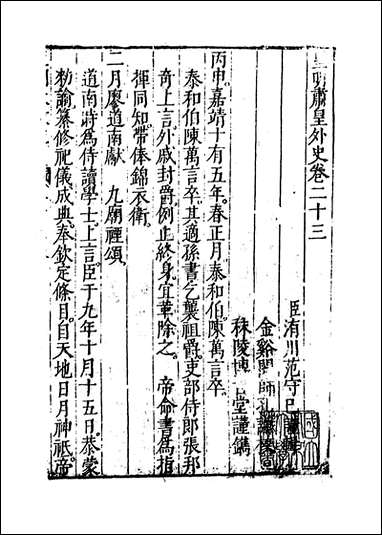 皇明肅皇外史卷二十三
臣洧川范守己
金谿閔師孔
秣陵博 堂謹鐫
丙申嘉靖十有五年春正月泰和伯陳萬言卒
泰和伯陳萬言卒其適孫書乞襲祖爵吏部侍郎張邦
奇上言外戚封爵例止終身宜革除之 帝命書為指
揮同知帶俸錦衣衛
二月廖道南獻 九廟禋頌
道南時為侍讀學士上言臣于九年十月十五日恭蒙
勑諭纂修祀儀成典奉欽定條目自天地日月神祇帝